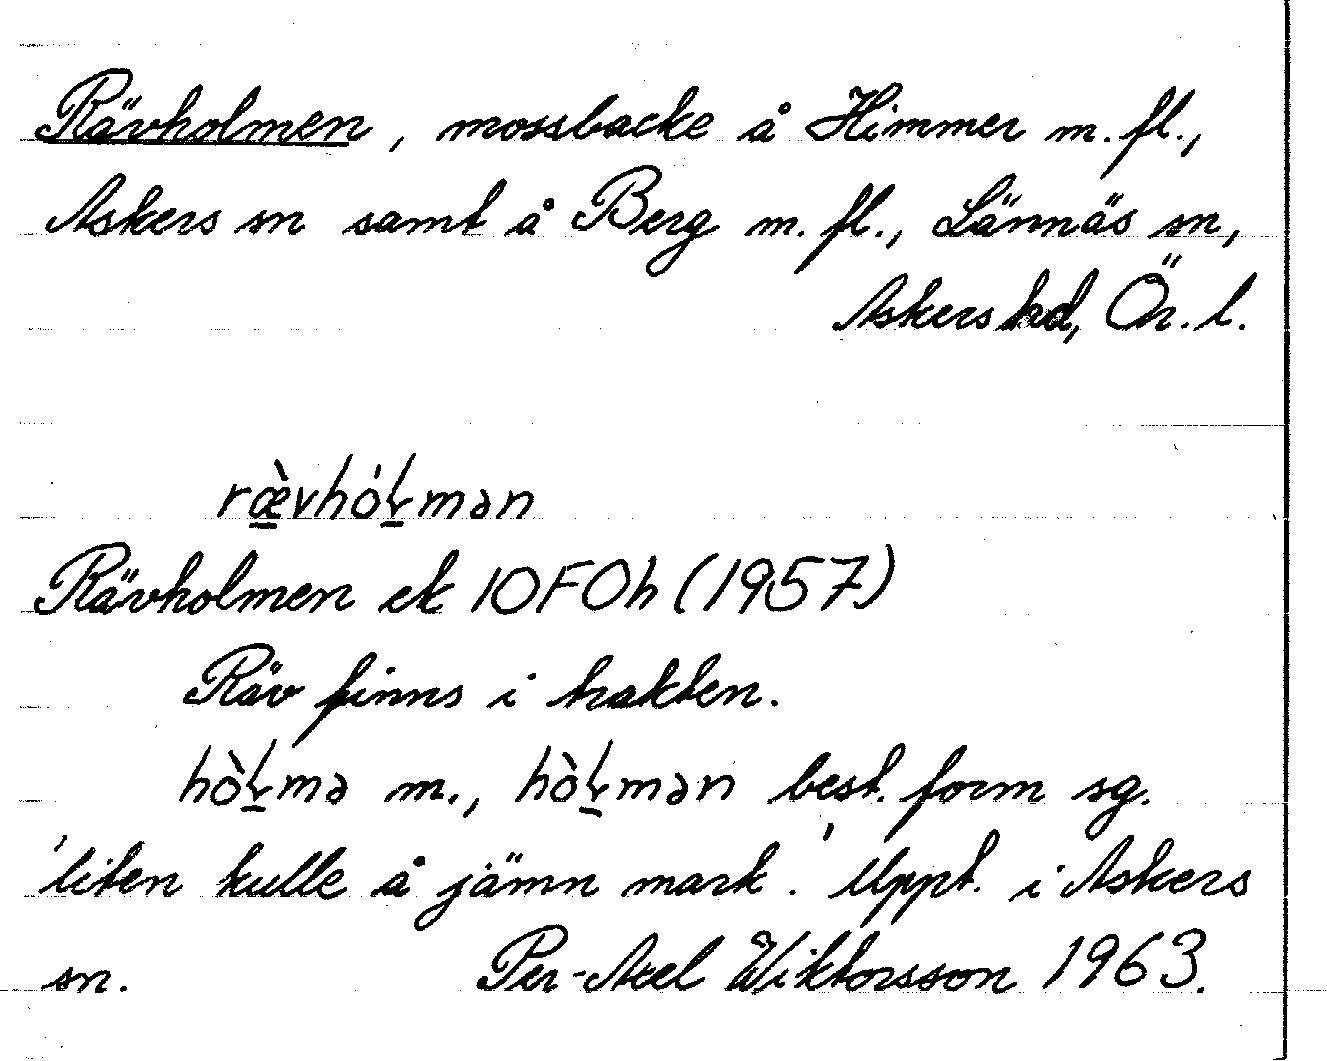 Rävholmen, mossbacke å Himmer m. fl.,
Askers sn samt å Berg m. fl., Lännäs sn,
Askers hd, Ör. l.
ræ̠̀vhóɫ̠mən
Rävholmen ek 10F0h (1957)
Räv finns i trakten.
hòɫ̠mə m., hòɫ̠mən best. form sg.
'liten kulle å jämn mark.' Uppt. i Askers
sn. Per-Axel Wiktorsson 1963.